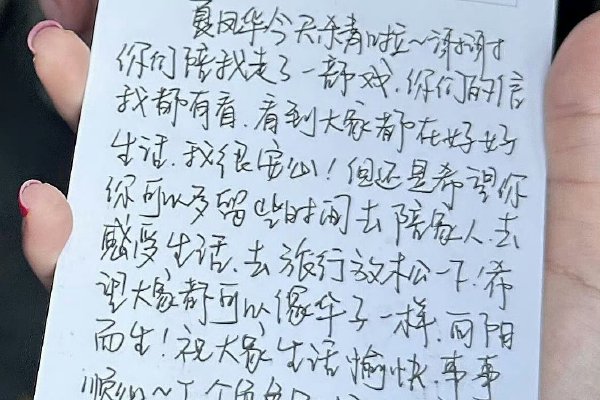 夏凤华今天杀青啦~谢谢
你们陪我走了一部戏.你们的信
我都有看.看到大家都在好好
生活.我很安心!但还是希望你
你可以多留些时间去陪家人.去
感受生活.去旅行放松一下!希
望大家都可以像华子一样.向阳
而生!祝大家生活愉快.事事
顺